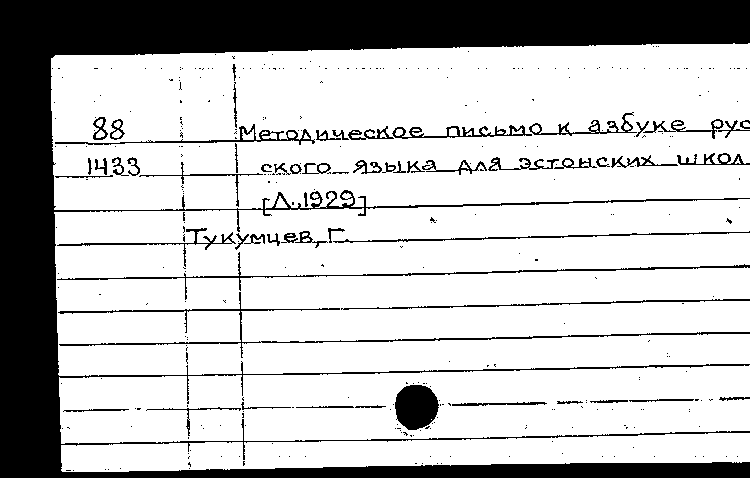 88 Методическое письмо к азбуке рус
1433 ского языка для эстонских школ
[Л., 1929]
Тукумцев, Г.